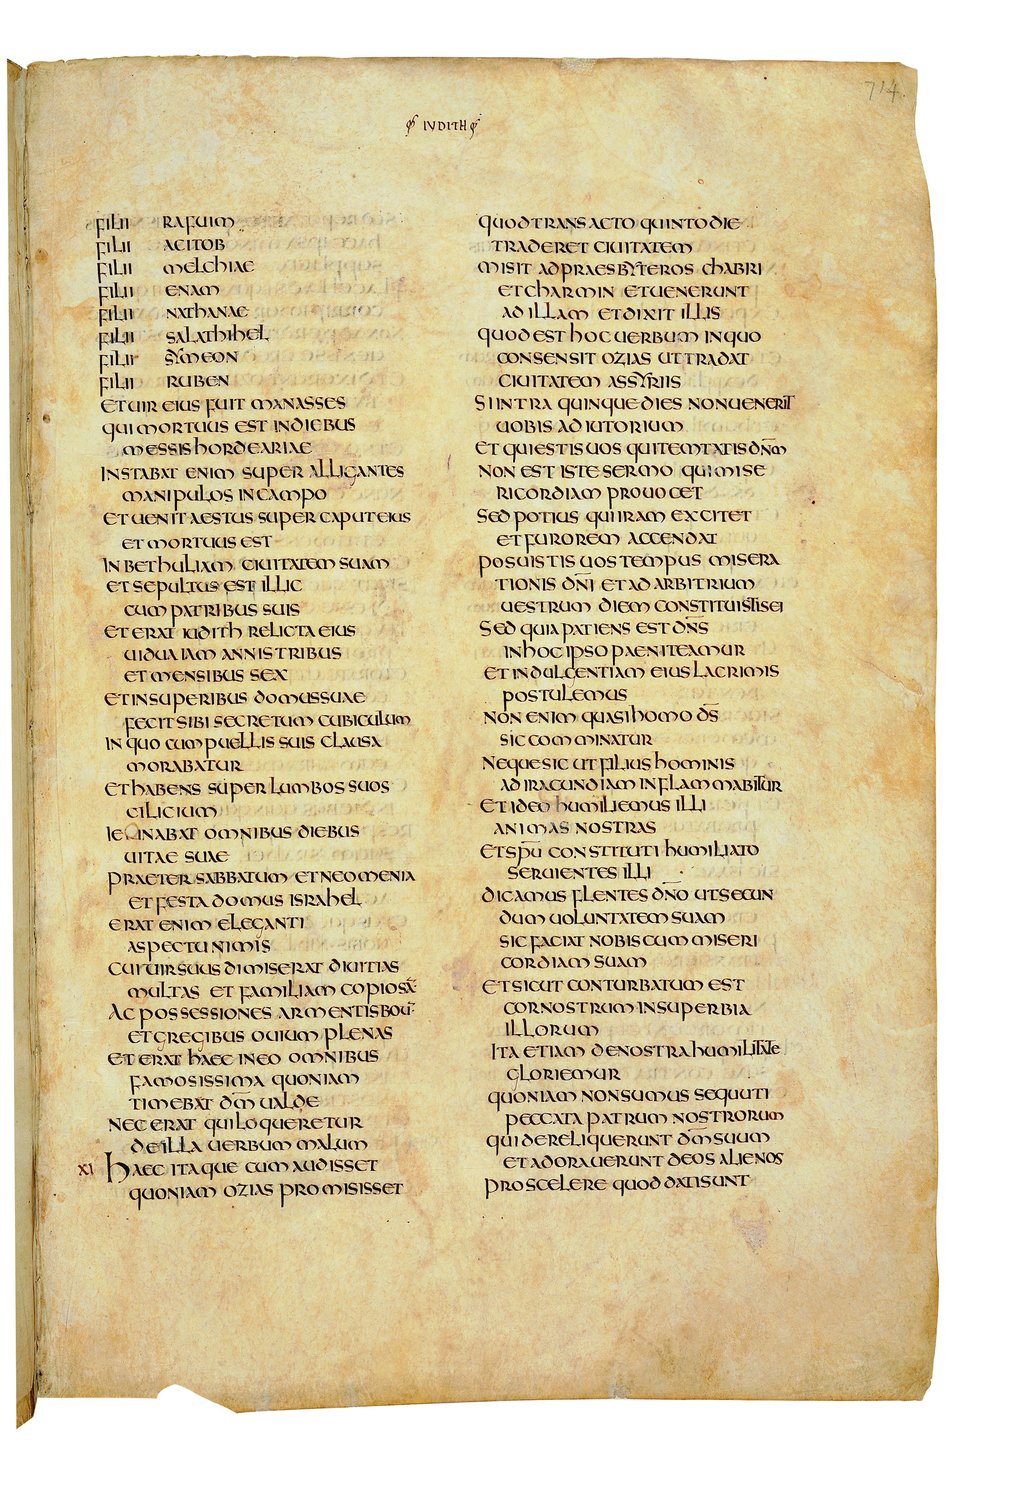 714
IUDITH
FILII RAFUIM
FILII ACITOB
FILII MELCHIAE
FILII ENAM
FILII NATHANAE
FILII SALATHIHEL
FILII SYMEON
FILII RUBEN
ET UIR EIUS FUIT MANASSES
QUI MORTUUS EST IN DIEBUS
MESSIS HORDEARIAE
INSTABAT ENIM SUPER ALLIGANTES
MANIPULOS IN CAMPO
ET UENIT AESTUS SUPER CAPUT EIUS
ET MORTUUS EST
IN BETHULIAM CIUITATEM SUAM
ET SEPULTUS EST ILLIC
CUM PATRIBUS SUIS
ET ERAT IUDITH RELICTA EIUS
UIDUA IAM ANNIS TRIBUS
ET MENSIBUS SEX
ET IN SUPERIBUS DOMUS SUAE
FECIT SIBI SECRETUM CUBICULUM
IN QUO CUM PUELLIS SUIS CLAUSA
MORABATUR
ET HABENS SUPER LUMBOS SUOS
CILICIUM
IEIUNABAT OMNIBUS DIEBUS
UITAE SUAE
PRAETER SABBATUM ET NEOMENIA
ET FESTA DOMUS ISRAHEL
ERAT ENIM ELEGANTI
ASPECTU NIMIS
CUI UIR SUUS DIMISERAT DIUITIAS
MULTAS ET FAMILIAM COPIOSĀ
AC POSSESSIONES ARMENTIS BOŪ
ET GREGIBUS OUIUM PLENAS
ET ERAT HAEC IN EO OMNIBUS
FAMOSISSIMA QUONIAM
TIMEBAT DM̄ UALDE
NEC ERAT QUI LOQUERETUR
DE ILLA UERBUM MALUM
XI HAEC ITAQUE CUM AUDISSET
QUONIAM OZIAS PROMISISSET
QUOD TRANSACTO QUINTO DIE
TRADERET CIUITATEM
MISIT AD PRAESBYTEROS CHABRI
ET CHARMIN ET UENERUNT
AD ILLAM ET DIXIT ILLIS
QUOD EST HOC UERBUM IN QUO
CONSENSIT OZIAS UT TRADAT
CIUITATEM ASSYRIIS
SI INTRA QUINQUE DIES NON UENERIT
UOBIS ADIUTORIUM
ET QUI ESTIS UOS QUI TEMTATIS DN̄M
NON EST ISTE SERMO QUI MISE
RICORDIAM PROUOCET
SED POTIUS QUI IRAM EXCITET
ET FUROREM ACCENDAT
POSUISTIS UOS TEMPUS MISERA
TIONIS DN̄I ET AD ARBITRIUM
UESTRUM DIEM CONSTITUISTIS EI
SED QUIA PATIENS EST DN̄S
IN HOC IPSO PAENITEAMUR
ET INDULGENTIAM EIUS LACRIMIS
POSTULEMUS
NON ENIM QUASI HOMO DS̄
SIC COMMINATUR
NEQUE SICUT FILIUS HOMINIS
AD IRACUNDIAM INFLAMMABITUR
ET IDEO HUMILIEMUS ILLI
ANIMAS NOSTRAS
ET SPŪ CONSTITUTI HUMILIATO
SERUIENTES ILLI
DICAMUS FLENTES DN̄O UT SECUN
DUM UOLUNTATEM SUAM
SIC FACIAT NOBISCUM MISERI
CORDIAM SUAM
ET SICUT CONTURBATUM EST
COR NOSTRUM IN SUPERBIA
ILLORUM
ITA ETIAM DE NOSTRA HUMILITATE
GLORIEMUR
QUONIAM NON SUMUS SEQUUTI
PECCATA PATRUM NOSTRORUM
QUI DERELIQUERUNT DM̄ SUUM
ET ADORAUERUNT DEOS ALIENOS
PRO SCELERE QUOD DATI SUNT